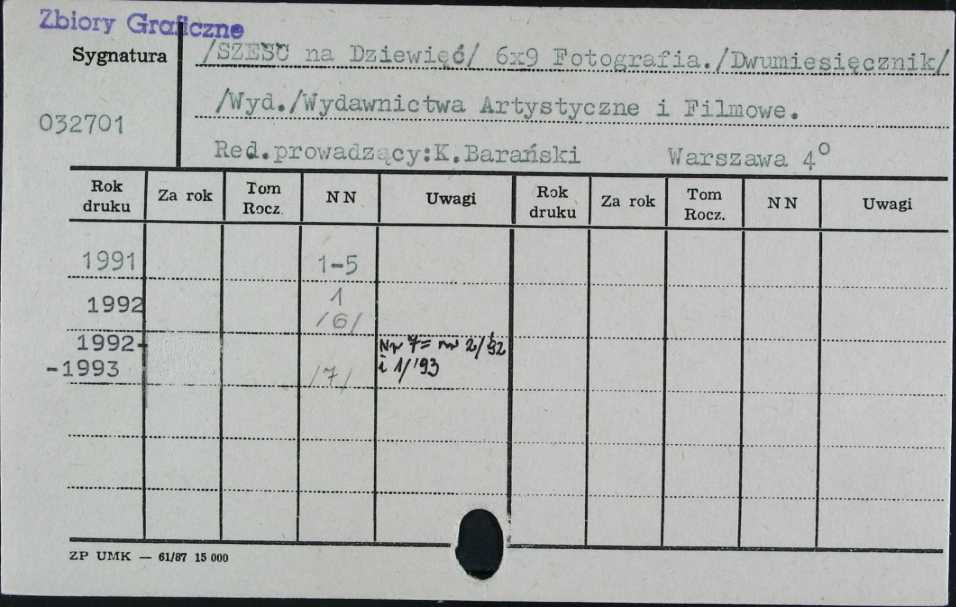 Zbiory Graficzne
Sygnatura
/SZEŚĆ na Dziewięć/ 6x9 Fotografia./Dwumiesięcznik/
/Wyd./Wydawnictwa Artystyczne i Filmowe.
032701
Red.prowadzący:K.Barański Warszawa 4°
Rok druku Za rok Tom Rocz. NN Uwagi Rok druku Za rok Tom Rocz. NN Uwagi
1991 1-5
1992 1 /6/
1992-
-1993 /7/ Nr 7 = nr 2/92
i 1/'93
ZP UMK — 61/87 15 000